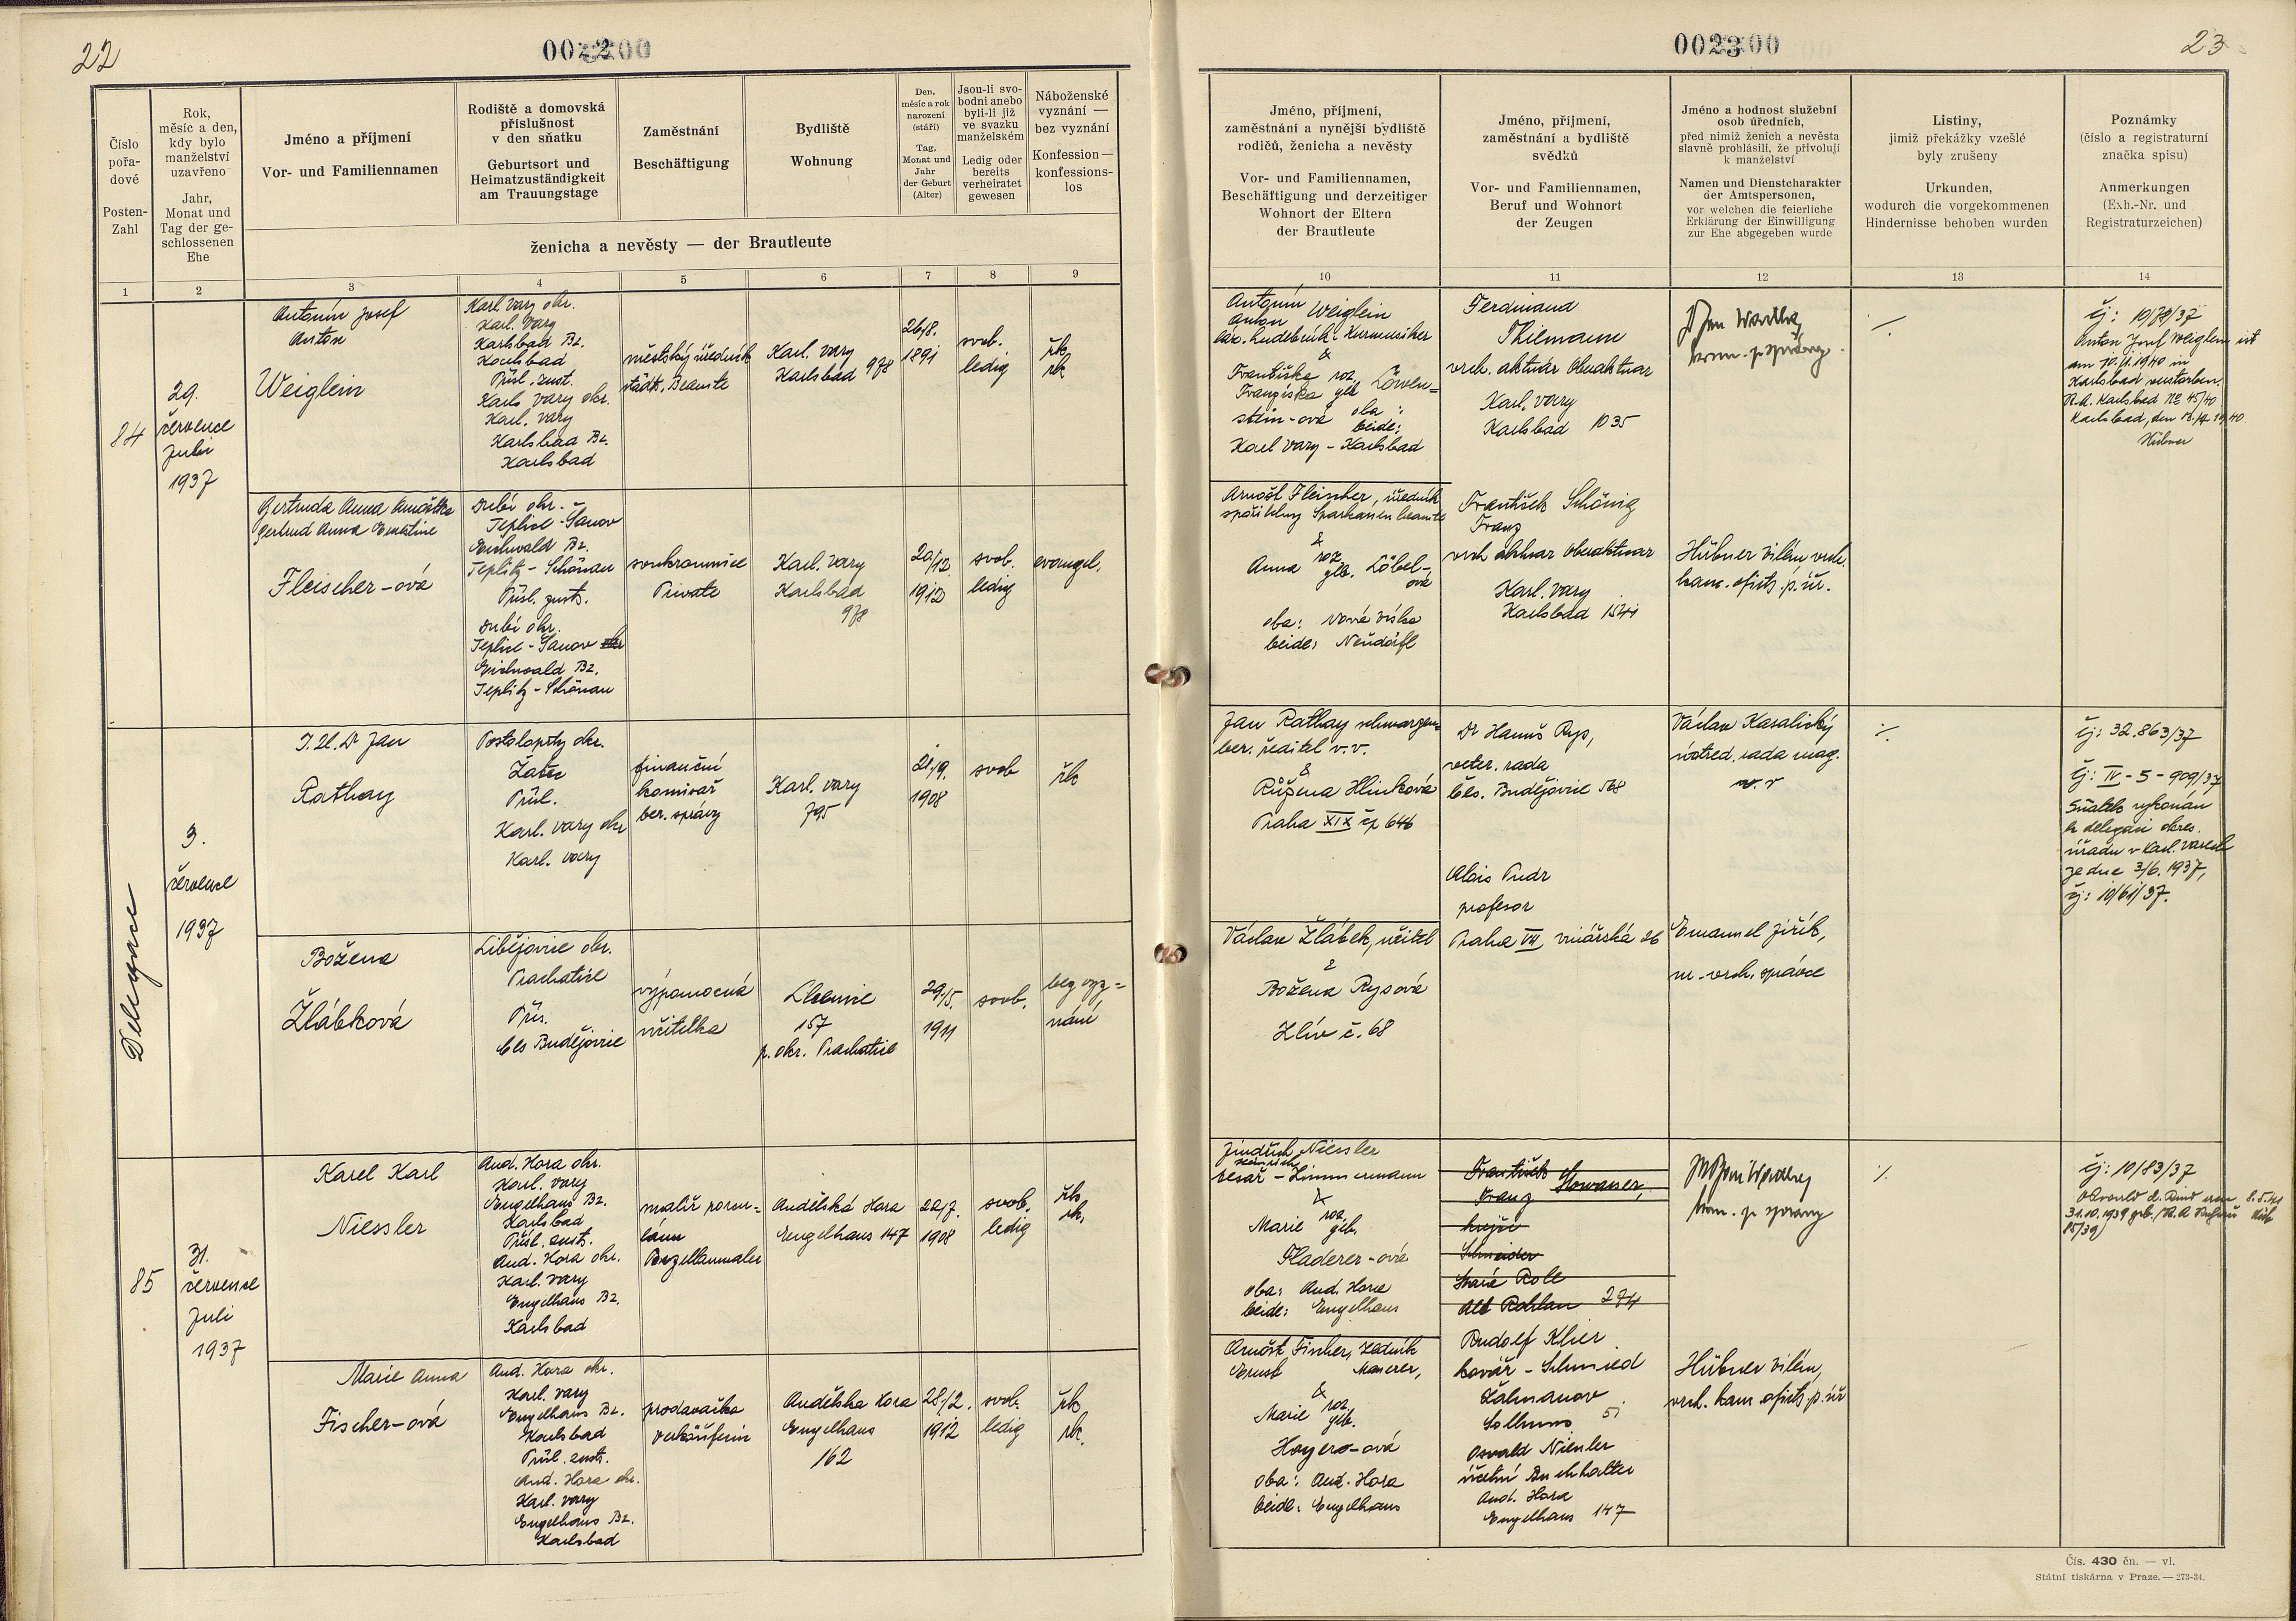 22
002200
Číslo
pořa-
dové
Posten-
Zahl
Rok,
měsíc a den,
kdy bylo
manželství
uzavřeno
Jahr,
Monat und
Tag der ge-
schlossenen
Ehe
Jméno a příjmení
Vor- und Familiennamen
Rodiště a domovská
příslušnost
v den sňatku
Geburtsort und
Heimatzuständigkeit
am Trauungstage
Zaměstnání
Beschäftigung
Bydliště
Wohnung
Den,
měsíc a rok
narození
(stáří)
Tag,
Monat und
Jahr
der Geburt
(Alter)
Jsou-li svo-
bodni anebo
byli-li již
ve svazku
manželském
Ledig oder
bereits
verheiratet
gewesen
Náboženské
vyznání —
bez vyznání
Konfession —
konfessions-
los
ženicha a nevěsty — der Brautleute
1 2 3 4 5 6 7 8 9
84
29.
července
Juli
1937
Antonín Josef
Anton
Weiglein
Karl. Vary okr.
Karl. Vary
Karlsbad Bz.
Karlsbad
Přísl. zust.
Karl. Vary okr.
Karl. Vary
Karlsbad Bz.
Karlsbad
městský úředník
städt. Beamte
Karl. Vary
Karlsbad 978
26/8.
1891
svob.
ledig
řk
rk
Gertruda Anna Arnoštka
Gertrud Anna Ernestine
Fleischer-ová
Dubí okr.
Teplice-Šanov
Eichwald Bz.
Teplitz-Schönau
Přísl. zust.
Dubí okr.
Teplice-Šanov
Eichwald Bz.
Teplitz-Schönau
soukromnice
Private
Karl. Vary
Karlsbad
978
20/12.
1912
svob.
ledig
evangel.
Delegace
3.
července
1937
J.U.Dr Jan
Rathay
Postoloprty okr.
Žatec
Přísl.
Karl. Vary okr
Karl. Vary
finanční
komisař
ber. správy
Karl. Vary
795
21/9.
1908
svob
řk
Božena
Žlábková
Libějovice okr.
Prachatice
Přís.
Čes Budějovice
výpomocná
učitelka
Lhenice
157
p. okr. Prachatice
29/5.
1911
svob.
bez vyz=
nání
85
31.
července
Juli
1937
Karel Karl
Niessler
And. Hora okr.
Karl. Vary
Engelhaus Bz.
Karlsbad
Přísl. zust.
And. Hora okr.
Karl. Vary
Engelhaus Bz.
Karlsbad
malíř porce=
lánu
Porzellanmaler
Andělská Hora
Engelhaus 147
22/7.
1908
svob.
ledig
řk.
rk.
Marie Anna
Fischer-ová
And. Hora okr.
Karl. Vary
Engelhaus Bz.
Karlsbad
Přísl. zust.
And. Hora okr.
Karl. Vary
Engelhaus Bz.
Karlsbad
prodavačka
Verkäuferin
Andělska Hora
Engelhaus
162
28/2.
1912
svob.
ledig
řk
rk.
002300
23
Jméno, příjmení,
zaměstnání a nynější bydliště
rodičů, ženicha a nevěsty
Vor- und Familiennamen,
Beschäftigung und derzeitiger
Wohnort der Eltern
der Brautleute
Jméno, příjmení,
zaměstnání a bydliště
svědků
Vor- und Familiennamen,
Beruf und Wohnort
der Zeugen
Jméno a hodnost služební
osob úředních,
před nimiž ženich a nevěsta
slavně prohlásili, že přivolují
k manželství
Namen und Dienstcharakter
der Amtspersonen,
vor welchen die feierliche
Erklärung der Einwilligung
zur Ehe abgegeben wurde
Listiny,
jimiž překážky vzešlé
byly zrušeny
Urkunden,
wodurch die vorgekommenen
Hindernisse behoben wurden
Poznámky
(číslo a registraturní
značka spisu)
Anmerkungen
(Exh.-Nr. und
Registraturzeichen)
10 11 12 13 14
Antonín Weiglein
Anton
láz. hudebník: Kurmusiker
&
Františka roz.
Franziska geb. Löwen=
stein-ová oba:
beide:
Karl Vary - Karlsbad
Ferdinand
Thiemann
vrch. aktuár Oberaktuar
Karl. Vary
Karlsbad 1035
kom. p. správy
./.
čj: 10/79/37
Anton Josef Weiglein ist
am 10.11.1940 in
Karlsbad verstorben.
St.A. Karlsbad No 45/40
Hübner
Arnošt Fleischer, úředník
spořitelny Sparkassenbeamte
&
Anna roz. geb. Löbel-
ová
oba: Nová Víska
beide: Neudörfl
František Schönig
Franz
vrch aktuar Oberaktuar
Karl. Vary
Karlsbad 1541
Hübner Vilém vrch.
kanc. oficiz. p. úř.
Jan Rathay schwarzen=
ber. ředitel v.v.
&
Růžena Hlinková
Praha XIX čp 646
Dr Hanuš Rys,
veter. rada
Čes. Budějovice 568
Alois Pudr
profesor
Praha VII vinářská 26
Václav Kasalický
místřed. rada mag.
m. r
./.
čj: 32.863/37
čj: IV-5-909/37
Sňatek vykonán
z delegaci okres.
úřadu v Karl. Varech
ze dne 3/6. 1937,
čj: 10/61/37.
Václav Žlábek, učitel
&
Božena Rysová
Zliv č. 68
Emanuel Jiřík,
m. vrch. správce
Jindřich Niessler
Heinrich
tesař - Zimmermann
&
Marie roz. geb.
Fladerer-ová
oba: And. Hora
beide: Engelhaus
František
Franz
krejčí
Schneider
Stará Role
Alt Rohlau 274
kom. p. správy
./.
čj: 10/83/37
Arnošt Fischer, zedník
Ernst Maurer,
&
Marie roz. geb.
Hoyero-ová
oba: And. Hora
beide: Engelhaus
Rudolf Klier
kovář - Schmied
Žalmanov
Sollmus 51
Osvald Niessler
účetní Buchhalter
And. Hora
Engelhaus 147
Hübner Vilém,
vrch. kanc oficiz. p. úř
Čís. 430 čn. — vl.
Státní tiskárna v Praze. — 273-34.